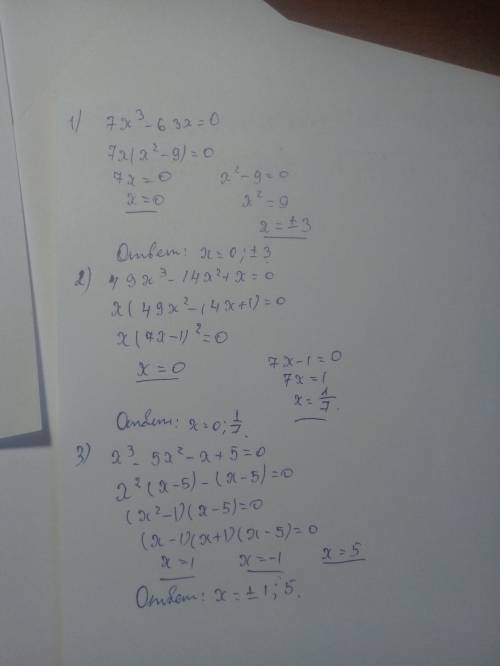 1) 7x³-63x=0
7x(x²-9)=0
7x=0 x²-9=0
x=0 x²=9
x=±3
Ответ: x=0;±3
2) 49x³-14x²+x=0
x(49x²-14x+1)=0
x(7x-1)²=0
x=0 7x-1=0
7x=1
x=1/7.
Ответ: x=0;1/7.
3) x³-5x²-x+5=0
x²(x-5)-(x-5)=0
(x²-1)(x-5)=0
(x-1)(x+1)(x-5)=0
x=1 x=-1 x=5
Ответ: x=±1;5.